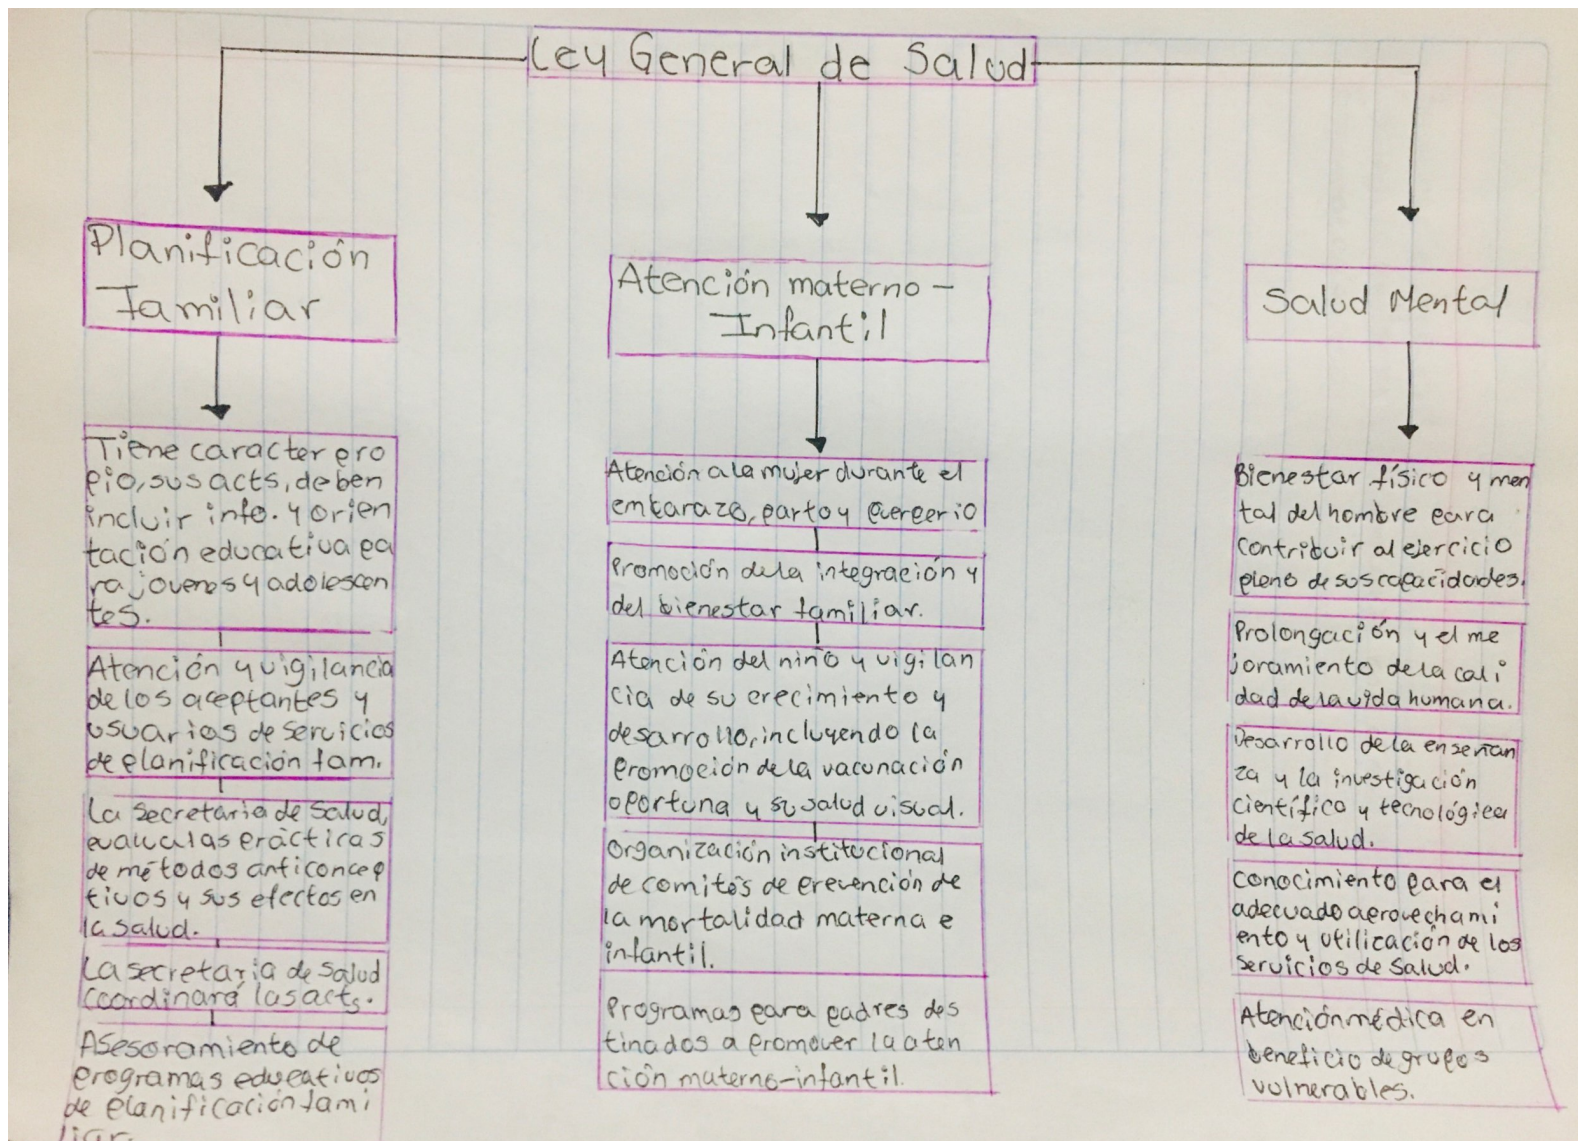 Ley General de Salud
Planificación
Familiar
Tiene caracter pro
pio, sus acts, deben
incluir info. y orien
tación educativa pa
ra jovenes y adolescen
tes.
Atención y vigilancia
de los aceptantes y
usuarios de servicios
de planificación fam.
La secretaria de Salud,
evalua las prácticas
de métodos anticoncep
tivos y sus efectos en
la salud.
La secretaria de salud
coordinará las acts.
Asesoramiento de
programas educativos
de planificación fami
liar.
Atención materno-
Infantil
Atención a la mujer durante el
embarazo, parto y puerperio
Promoción de la integración y
del bienestar familiar.
Atención del niño y vigilan
cia de su crecimiento y
desarrollo, incluyendo la
promoción de la vacunación
oportuna y su salud visual.
Organización institucional
de comités de prevención de
la mortalidad materna e
infantil.
Programas para padres des
tinados a promover la aten
ción materno-infantil.
Salud Mental
Bienestar físico y men
tal del hombre para
contribuir al ejercicio
pleno de sus capacidades.
Prolongación y el me
joramiento de la cali
dad de la vida humana.
Desarrollo de la enseñan
za y la investigación
científico y tecnológica
de la salud.
Conocimiento para el
adecuado aprovechami
ento y utilicación de los
servicios de salud.
Atención médica en
beneficio de grupos
vulnerables.